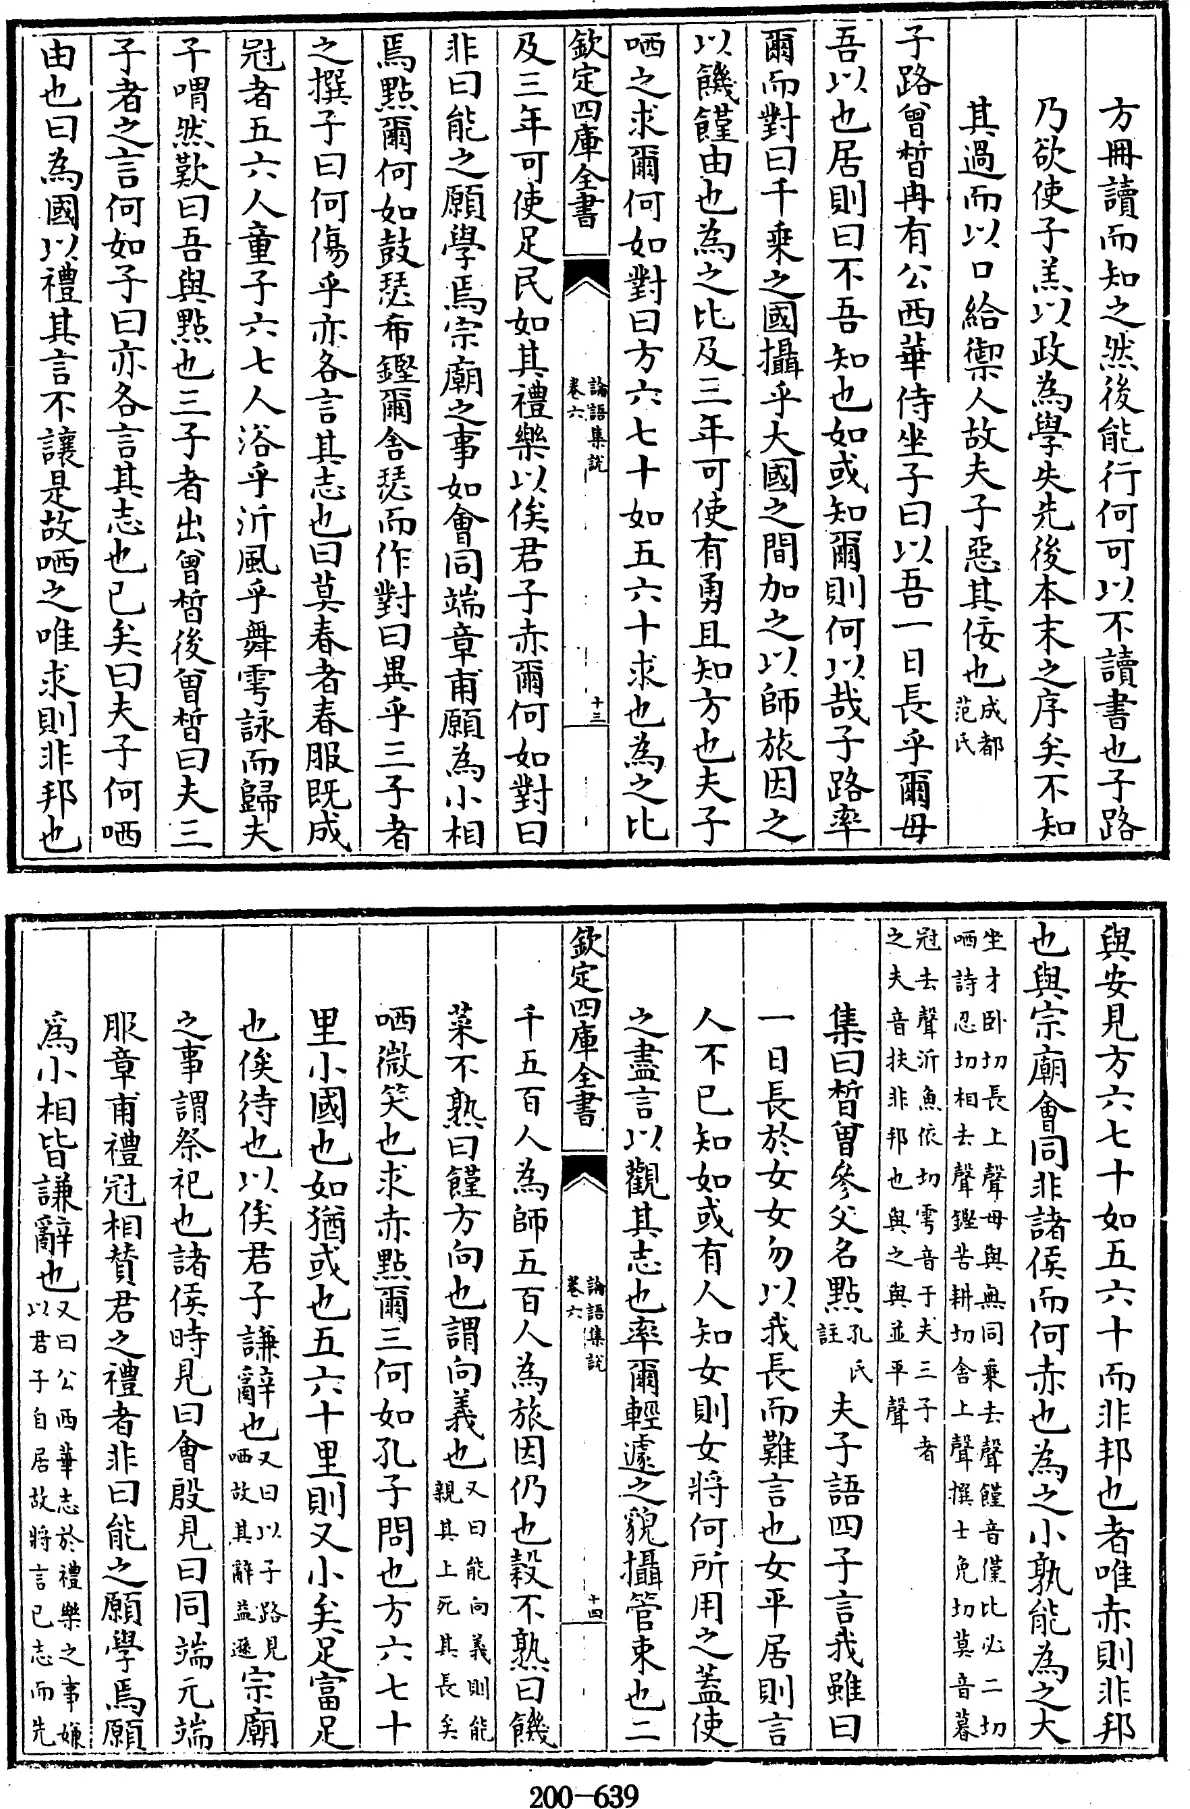 方冊讀而知之然後能行何可以不讀書也子路
乃欲使子羔以政為學失先後本末之序矣不知
其過而以口給禦人故夫子惡其佞也成都范氏
子路曾晳冉有公西華侍坐子曰以吾一日長乎爾毋
吾以也居則曰不吾知也如或知爾則何以哉子路率
爾而對曰千乘之國攝乎大國之間加之以師旅因之
以饑饉由也為之比及三年可使有勇且知方也夫子
哂之求爾何如對曰方六七十如五六十求也為之比
欽定四庫全書
論語集說
卷六
十三
及三年可使足民如其禮樂以俟君子赤爾何如對曰
非曰能之願學焉宗廟之事如會同端章甫願為小相
焉點爾何如鼓瑟希鏗爾舍瑟而作對曰異乎三子者
之撰子曰何傷乎亦各言其志也曰莫春者春服既成
冠者五六人童子六七人浴乎沂風乎舞雩詠而歸夫
子喟然歎曰吾與點也三子者出曾晳後曾晳曰夫三
子者之言何如子曰亦各言其志也已矣曰夫子何哂
由也曰為國以禮其言不讓是故哂之唯求則非邦也
與安見方六七十如五六十而非邦也者唯赤則非邦
也與宗廟會同非諸侯而何赤也為之小孰能為之大
坐才卧切長上聲毋與無同乘去聲饉音僅比必二切
哂詩忍切相去聲鏗苦耕切舍上聲撰士免切莫音暮
冠去聲沂魚依切雩音于夫三子者
之夫音扶非邦也與之與並平聲
集曰晳曾參父名點孔氏註夫子語四子言我雖曰
一日長於女女勿以我長而難言也女平居則言
人不已知如或有人知女則女將何所用之蓋使
之盡言以觀其志也率爾輕遽之貌攝管束也二
欽定四庫全書
論語集說
卷六
十四
千五百人為師五百人為旅因仍也穀不熟曰饑
菜不熟曰饉方向也謂向義也又曰能向義則能親其上死其長矣
哂微笑也求赤點爾三何如孔子問也方六七十
里小國也如猶或也五六十里則又小矣足富足
也俟待也以俟君子謙辭也又曰以子路見哂故其辭益遜宗廟
之事謂祭祀也諸侯時見曰會殷見曰同端元端
服章甫禮冠相贊君之禮者非曰能之願學焉願
為小相皆謙辭也又曰公西華志於禮樂之事嫌以君子自居故將言已志而先
200-639